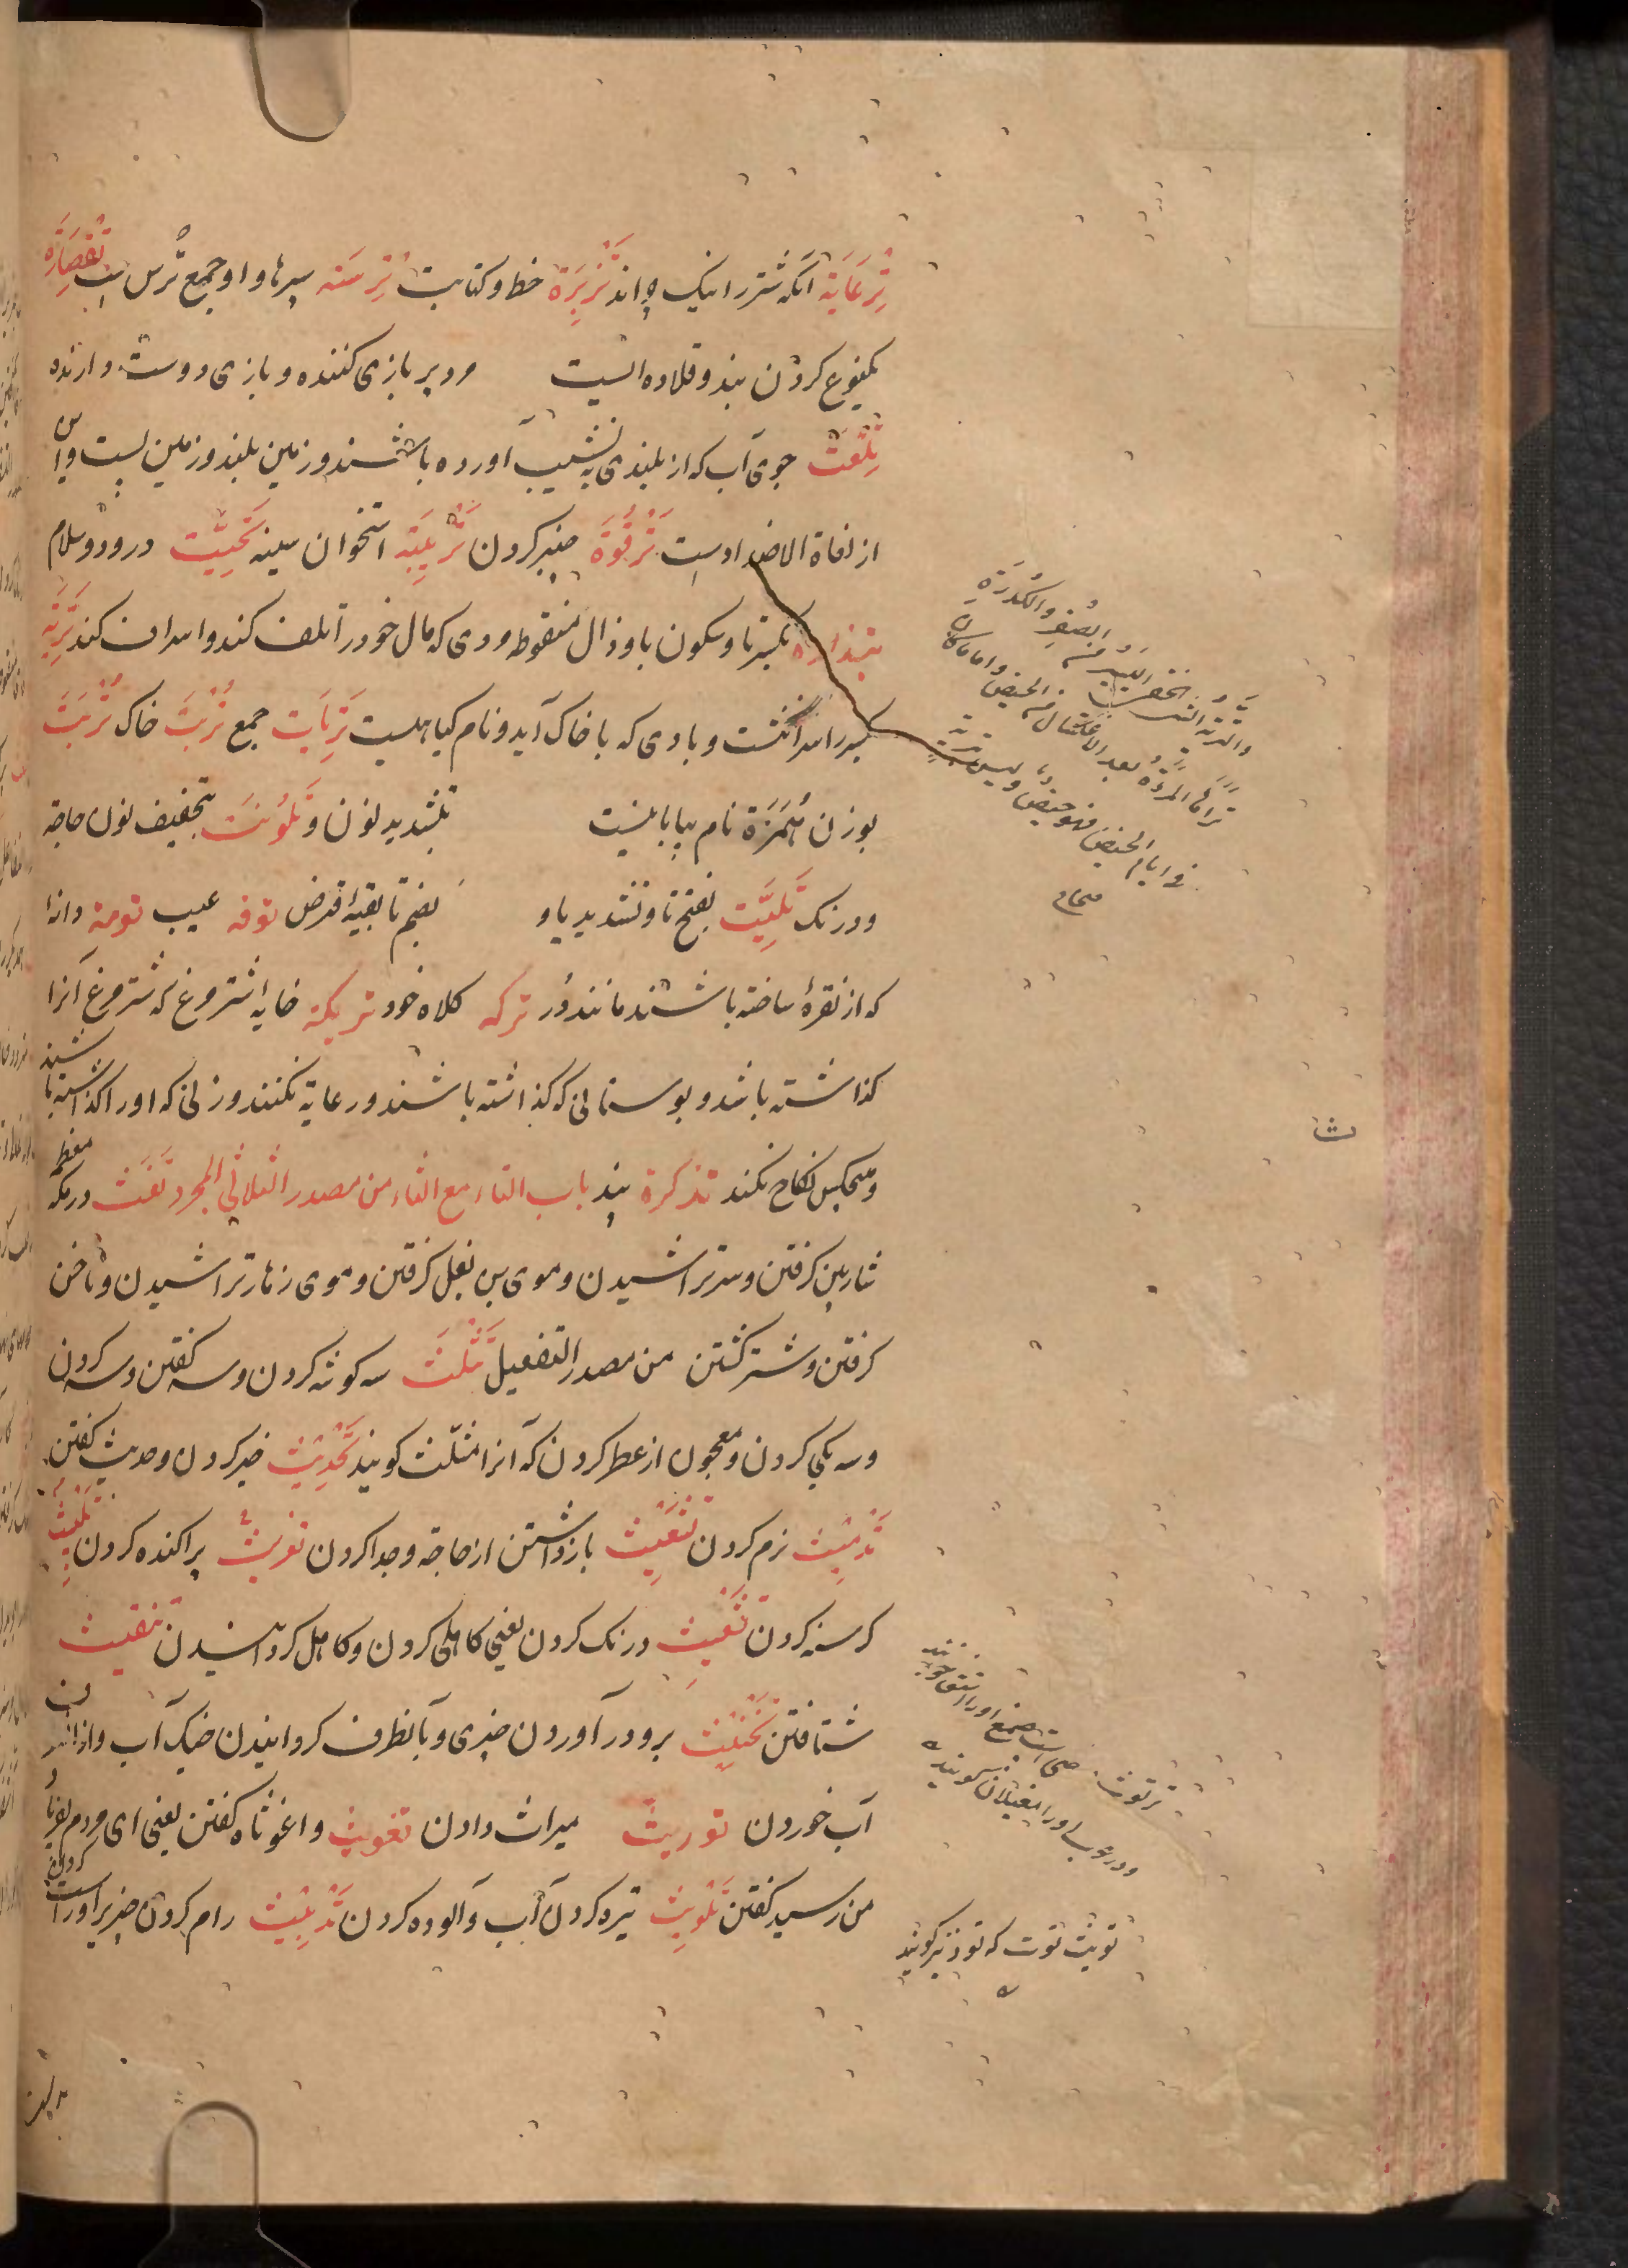 تِرعَایَة آنکه شتر را نیک چراند تَزْبِرَة خط و کتابت تِرَسَته سپرها و او جمع تُرس است تقصَارَه
یکنوع کردن بند و قلاده ایست مرد پر بازی کننده و بازی دوست دارنده
تَلْعَتْ جوی آب که از بلندی به نشیب آورده باشند و زمین بلند و زمین پست و این
از لغاة الاضداد است تَرْقُوَة چنبر کردن تَریِبَه استخوان سینه تَحِیَّت درود و سلام
تبذاره بکسر تا و سکون با و ذال منقوطه مردی که مال خود را تلف کند و اسراف کند تَرِبَه
سر انگشت و بادی که با خاک آید و نام گیاهیست تَرِبَات جمع تُربَت خاک تُرَبَتْ
بوزن هُمَزَة نام بیابانیست بتشدید نون و تَلُونَت بتخفیف نون حاجة
و درنک تَلِیَّت بفتح تا و تشدید یا و بضم تا بقیهٔ قرض توفه عیب تومة دانهٔ
که از نقره ساخته باشند مانند دُر ترکه کلاه خود تریکة خایهٔ اشترمرغ که شترمرغ آنرا
گذاشته باشد و بوستانی که گذاشته باشند و رعایة نکنند و زنی که او را گذاشته باشند
و هیچکس نکاح نکند تذکرة پند باب التاء مع الثاء من مصدر الثلاثی المجرد تَفَث در مکه معظمه
شاربین گرفتن و سر تراشیدن و موی بن بغل گرفتن و موی زهار تراشیدن و ناخن
گرفتن و شتر کشتن من مصدر التفعیل تَثْلِیث سه گوشه کردن و سه گفتن و سه کردن
و سه یکی کردن و معجون از عطر کردن که آنرا مثلّث گویند تَحْدِیْث خبر کردن و حدیث گفتن
تَدْمِیْث نرم کردن باز داشتن از حاجة و جدا کردن پراکنده کردن
گرسنه کردن درنک کردن یعنی کاهلی کردن و کاهل گردانیدن تنقیث
شتافتن تَخْنِیْث برو درآوردن چیزی و با نطرف گردانیدن خیک آب و از آن
آب خوردن توریث میراث دادن تغویث و اغوثاه گفتن یعنی ای مردم بفریاد
من رسید گفتن تَلْوِیْث تیره کردن آب و آلوده کردن تَدْیِیْث رام کردن چیزی و راست کردن
والتریّة الخفی الیسیر من الصفر والکدرة
تراها المرأة بعد الاغتسال من الحیض واما ماکان
فی ایام الحیض فهو حیض ولیس بتریّة
صحاح
ث
و در عرب او را مغیلان گویند
توث توت که تود نیز گویند